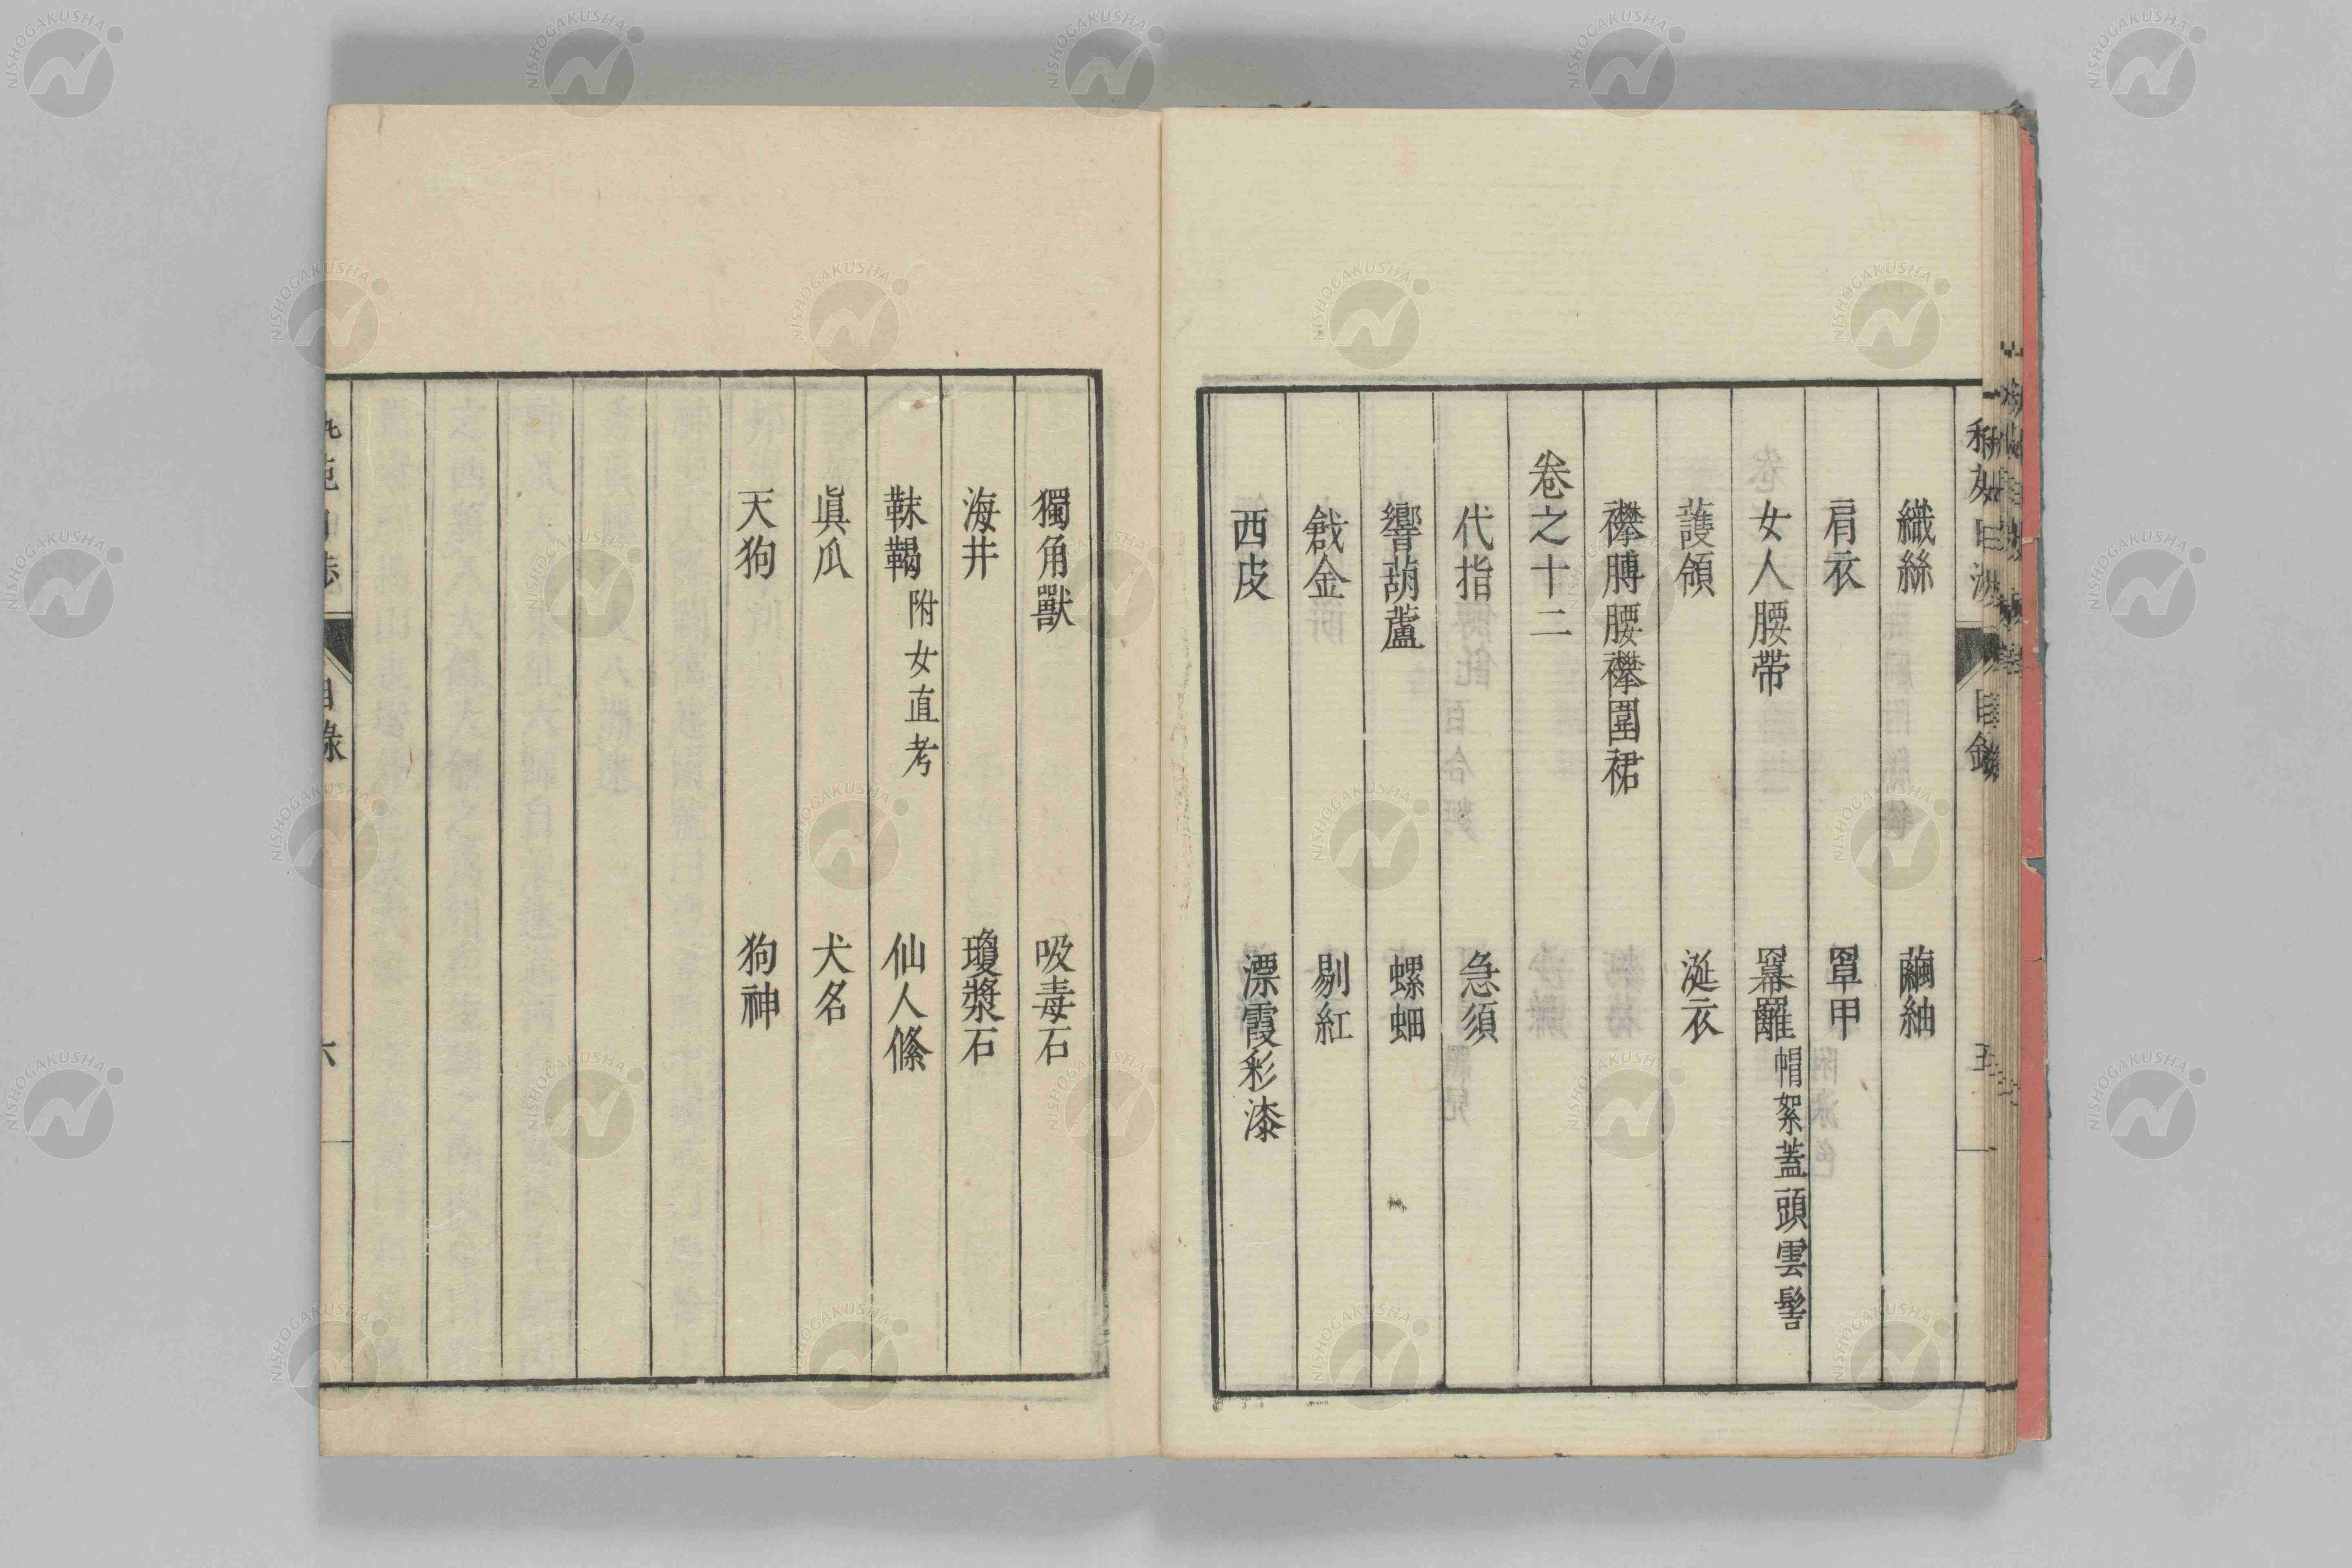 織絲　繭紬
肩衣　罩甲
女人腰帶　冪䍦帽絮蓋頭雲髻
護領　涎衣
襻膊腰襻圍裙
卷之十二
代指　急須
響葫蘆　螺蚰
戧金　剔紅
西皮　漂霞彩漆
目錄
五
獨角獸　吸毒石
海井　瓊漿石
靺鞨附女直考　仙人絛
眞瓜　犬名
天狗　狗神
目錄
六
NISHOGAKUSHA